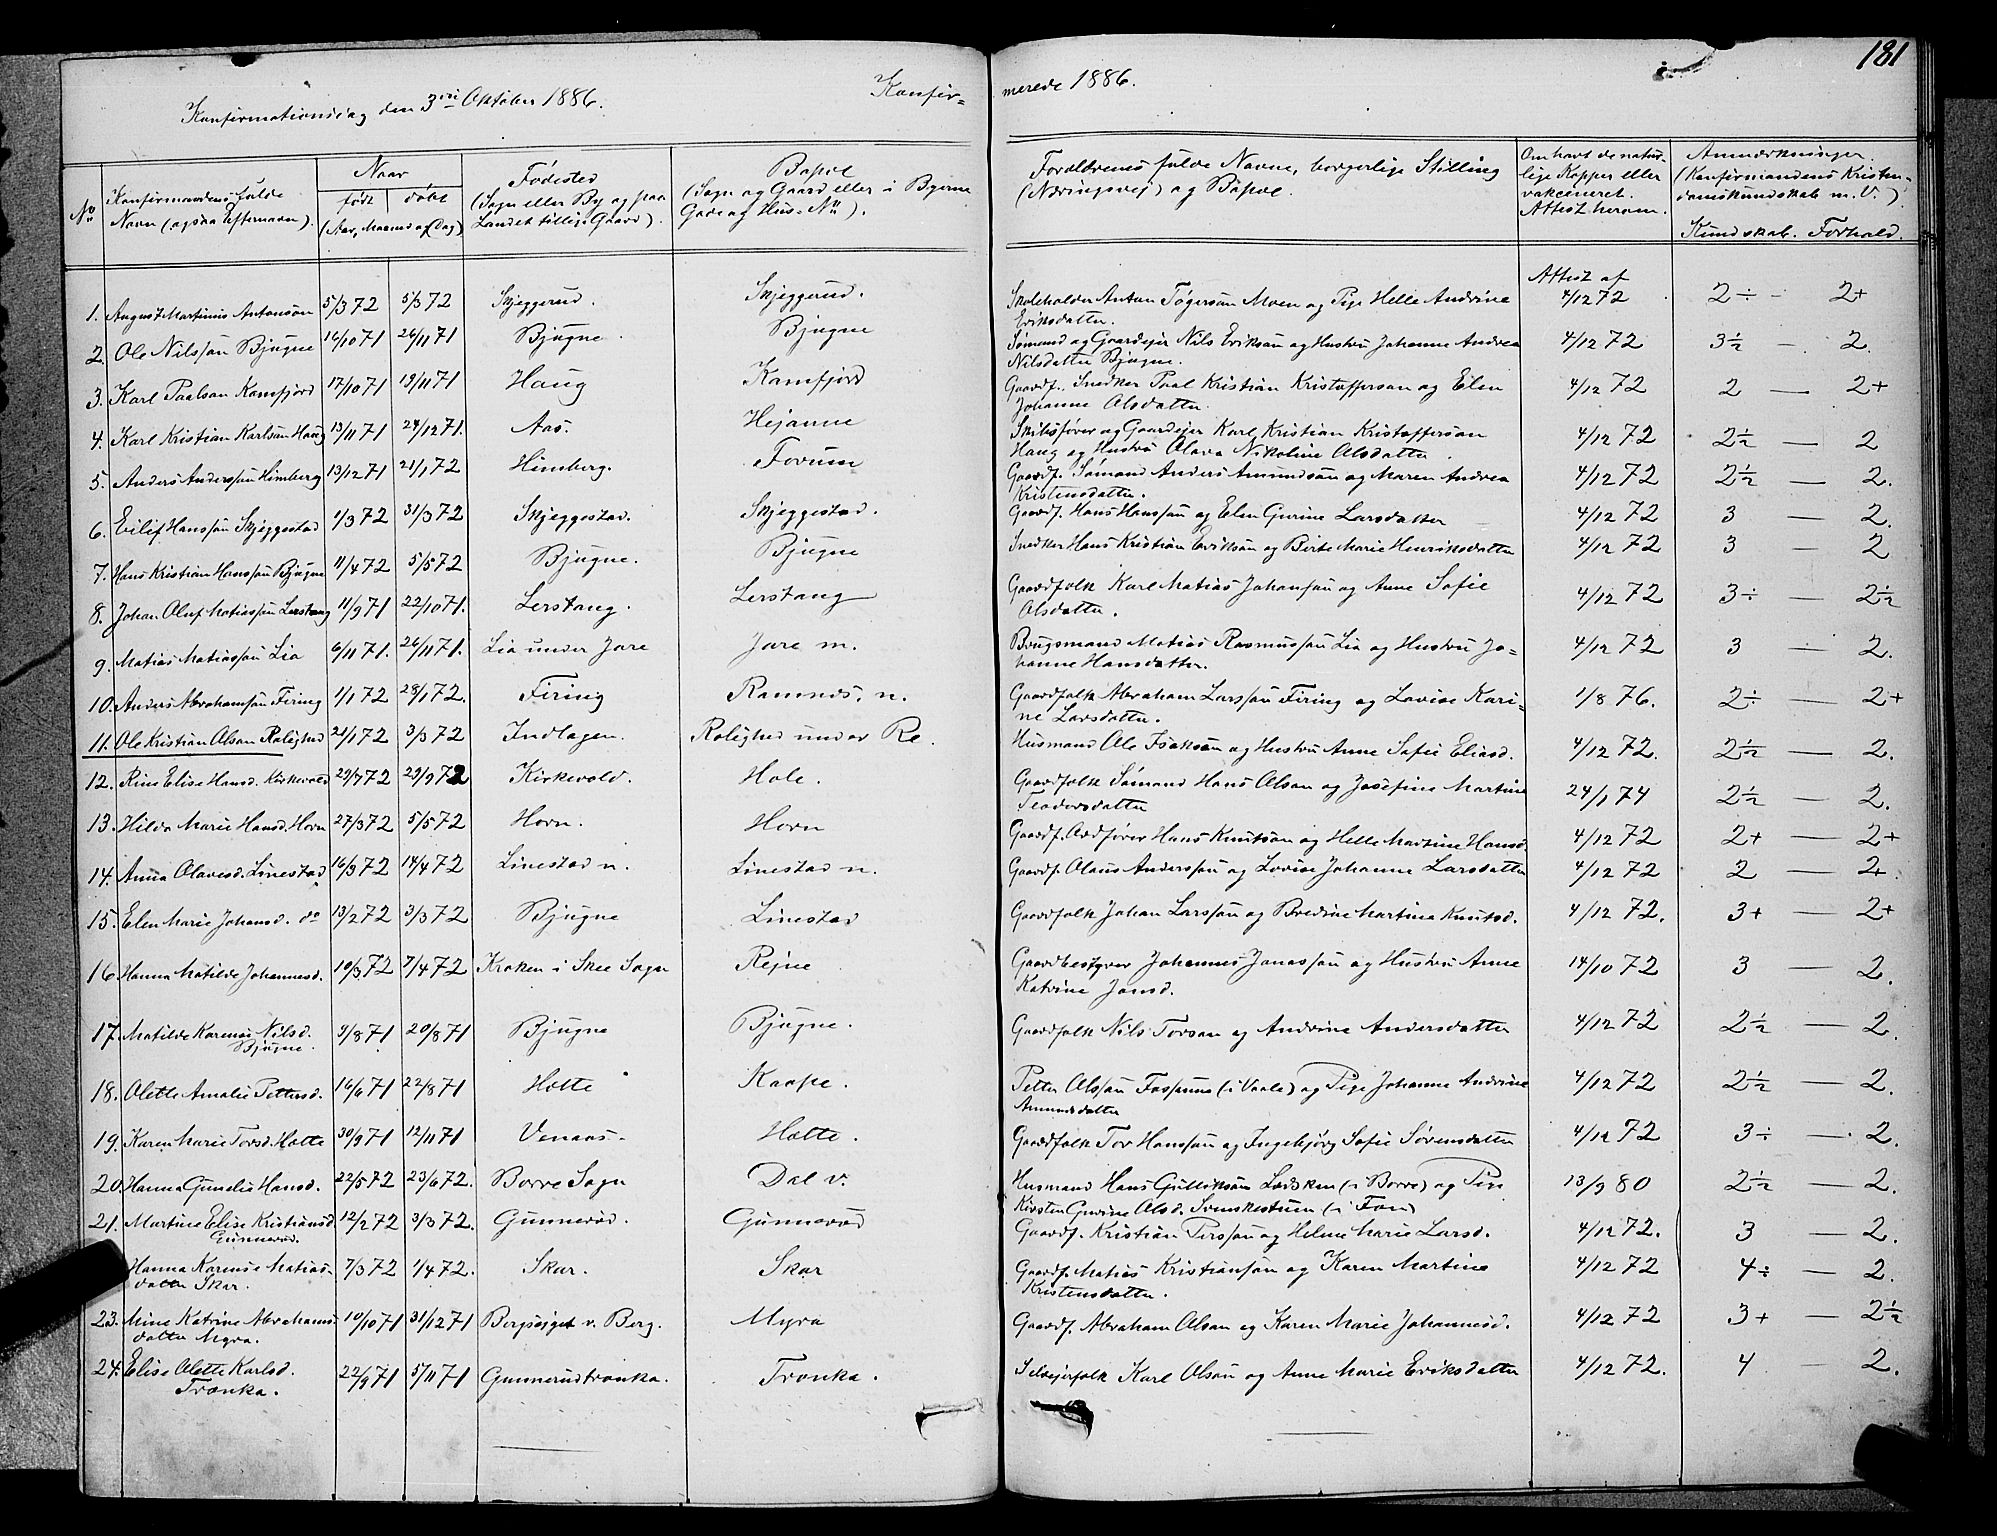 181
Konfirmationsdag den 3die Oktober 1886.
Konfir-
merede 1886.
No
Konfirmandens fulde
Navn (ogsaa Efternavn).
Naar
født
døbt
(Aar, Maaned og Dag)
Fødested
(Sogn eller By og paa
Landet tillige Gaard).
Bopæl
(Sogn og Gaard eller i Byerne
Gade og Hus-No).
Forældrenes fulde Navne, borgerlige Stilling
(Næringsvej) og Bopæl.
Om havt de natur-
lige Kopper eller
vakcineret.
Attest herom.
Anmærkninger.
(Konfirmandens Kristen-
domskundskab m. V.).
Kundskab. Forhold.
Attest af
1. August Martinius Antonsøn 5/3 72 5/5 72 Skjeggerud. Skjeggerud. Skoleholder Anton Tøgersøn Moen og Pige Helle Andrine 4/12 72 2÷ - 2+
Eriksdatter.
2. Ole Nilssøn Bjugne 16/10 71 26/11 71 Bjugne Bjugne Sømand og Gaardejer Nils Eriksøn og Hustru Johanne Andrea 4/12 72 3½ - 2.
Nilsdatter Bjugne.
3. Karl Paalsøn Kamfjord 17/10 71 19/11 71 Haug Kamfjord Gaardf. Snedker Paal Kristian Kristoffersøn og Elen 4/12 72 2 — 2+
Johanne Olsdatter.
4. Karl Kristian Karlsøn Haug 13/11 71 24/12 71. Aas. Hejanne Skibsfører og Gaardejer Karl Kristian Kristoffersøn 4/12 72 2½ — 2
Haug og Hustru Olava Nikoline Olsdatter.
5. Anders Anderssøn Himberg 13/12 71 21/1 72 Himberg. Forum Gaardf. Sømand Anders Amundsøn og Maren Andrea 4/12 72 2½ — 2.
Kristensdatter.
6. Eilif Hanssøn Skjeggestad 1/3 72 31/3 72 Skjeggestad. Skjeggestad. Gaardf. Hans Hanssøn og Elen Gurine Larsdatter 4/12 72 3 — 2.
7. Hans Kristian Hanssøn Bjugne 11/4 72 5/5 72 Bjugne. Bjugne Snedker Hans Kristian Eriksøn og Birte Marie Henriksdatter 4/12 72 3 — 2
8. Johan Oluf Matiassøn Lerstang 11/9 71 22/10 71. Lerstang. Lerstang Gaardfolk Karl Matias Johansøn og Anne Sofie 4/12 72 3÷ — 2½
Olsdatter.
9. Matias Matiassøn Lia 6/11 71. 26/11 71. Lia under Jare Jare m. Brugsmand Matias Rasmussøn Lia og Hustru Jo- 4/12 72 3 — 2.
hanne Hansdatter.
10. Anders Abrahamsøn Firing 1/1 72 28/1 72. Firing Ramnes. n. Gaardfolk Abraham Larssøn Firing og Lovise Kari- 1/8 76. 2÷ — 2+
ne Larsdatter.
11. Ole Kristian Olsøn Rolighed 21/1 72 3/3 72 Indlagen. Rolighed under Re. Husmand Ole Isaksøn og Hustru Anne Sofie Eliasd. 4/12 72. 2½ — 2.
12. Rine Elise Hansd. Kirkevold 29/7 72 29/9 72 Kirkevold. Hole. Gaardfolk Sømand Hans Olsøn og Josefine Martine 24/1 74 2½ — 2.
Teodorsdatter
13. Hilda Marie Hansd. Horn 27/3 72 5/5 72 Horn. Horn Gaardf. Ordfører Hans Knutsøn og Helle Martine Hansd. 4/12 72 2+ — 2+
14. Anna Olavesd. Linestad 16/3 72 14/4 72 Linestad n. Linestad n. Gaardf. Olaus Anderssøn og Lovise Johanne Larsdatter 4/12 72 2 — 2+
15. Elen Marie Johansd. do 13/2 72 3/3 72 Bjugne Linestad Gaardfolk Johan Larssøn og Bredine Martina Knutsd. 4/12 72. 3+ — 2+
16. Hanna Matilde Johannesd. 10/3 72 7/4 72 Kroken i Skee Sogn Rejne Gaardbestyrer Johannes Jonassøn og Hustru Anne 14/10 72 3 — 2.
Katrine Jonsd.
17. Matilde Karense Nilsd. 9/8 71 20/8 71 Bjugne Bjugne. Gaardfolk Nils Torsøn og Andrine Andersdatter 4/12 72 2½ — 2.
Bjugne.
18. Olette Amalie Pettersd. 16/6 71 22/8 71 Holte Kaape. Petter Olssøn Fossum (i Vaale) og Pige Johanne Andrine 4/12 72 2½ — 2.
Amundsdatter
19. Karen Marie Torsd. Holte 30/9 71 12/11 71 Venaas. Holte. Gaardfolk Tor Hanssøn og Ingebjørg Sofie Sørensdatter 4/12 72 3÷ — 2.
20. Hanna Gunelie Hansd. 22/5 72 23/6 72. Borre Sogn Dal v. Husmand Hans Gulliksøn (i Borre) og Pige 13/9 80 2½ — 2.
Kirsten Gurine Olsd. Svenskestuen (i Fon)
21. Martine Elise Kristiansd. 12/2 72 3/3 72. Gunnerød. Gunnerød Gaardf. Kristian Perssøn og Helene Marie Larsd. 4/12 72. 3 — 2.
Gunnerød.
Hanna Karense Matias- 7/3 72 1/4 72. Skar. Skar Gaardf. Matias Kristiansøn og Karen Martine 4/12 72 4÷ — 2.
datter Skar. Kristensdatter.
23. Mina Katrine Abrahams- 10/10 71 31/12 71 Bergsejet v. Berg. Myra Gaardf. Abraham Olsøn og Karen Marie Johannesd. 4/12 72 3+ — 2½
datter Myra.
24. Elise Olette Karlsd. 22/9 71 5/11 71 Gunnerudtronka. Tronka. Selvejerfolk Karl Olsøn og Anne Marie Eriksdatter 4/12 72. 4 — 2.
Tronka.